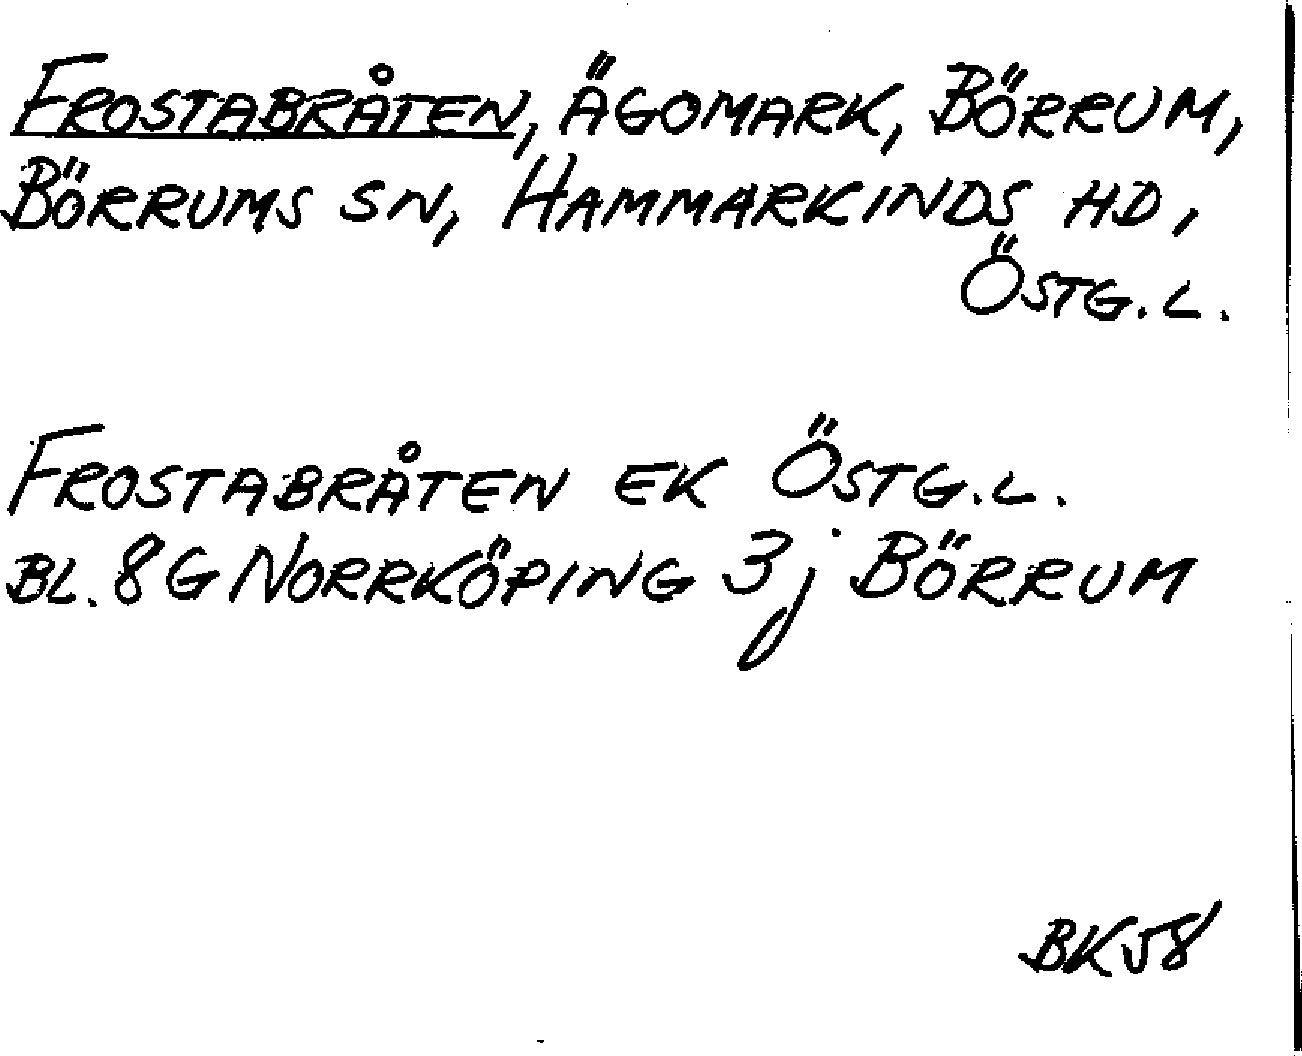 FROSTABRÅTEN, ÄGOMARK, BÖRRUM,
BÖRRUMS SN, HAMMARKINDS HD,
ÖSTG. L.
FROSTABRÅTEN EK ÖSTG. L.
BL. 8G NORRKÖPING 3j BÖRRUM
BK58